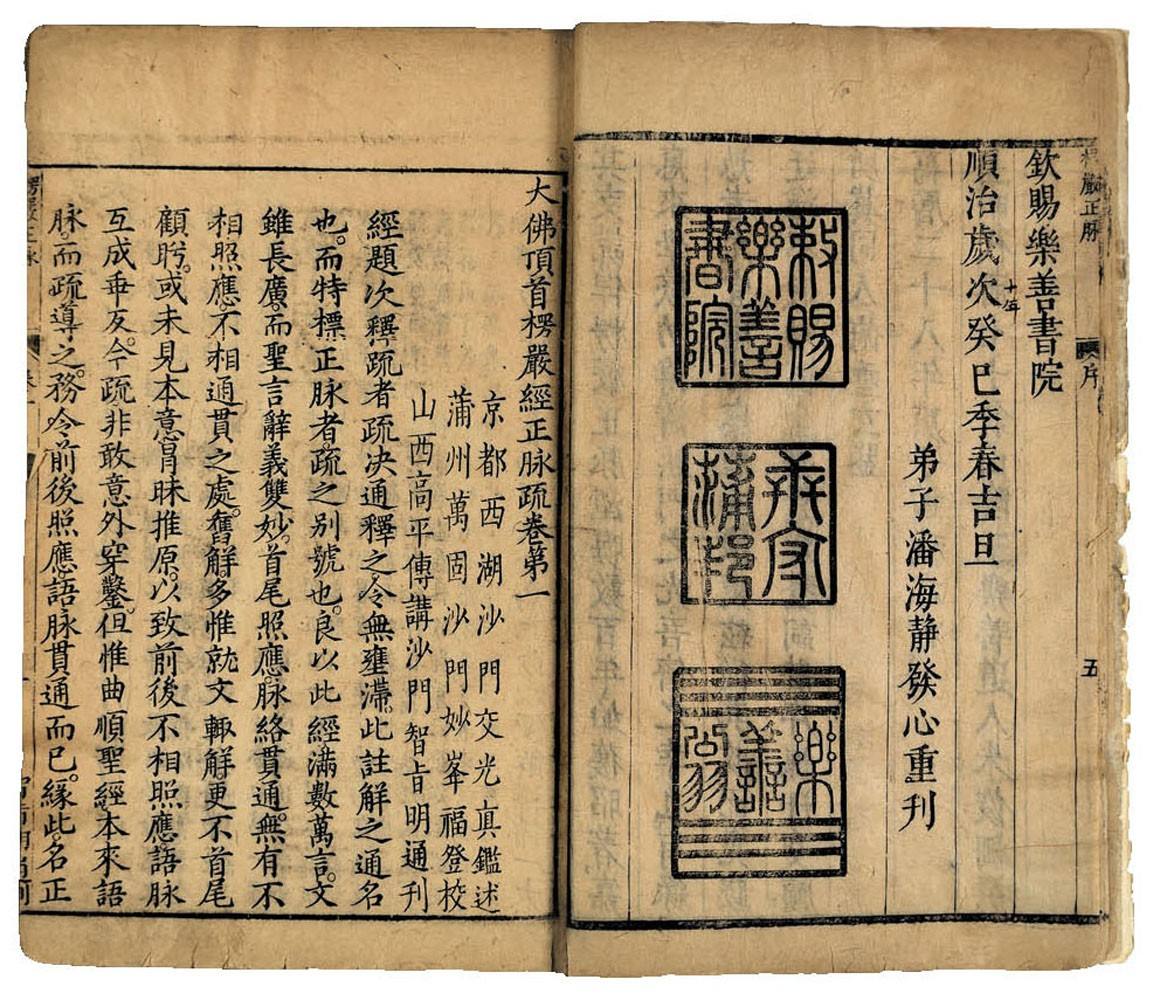 楞嚴正脉
序
五
欽賜樂善書院
順治歲次癸巳季春吉旦
十年
弟子潘海靜發心重刊
敕賜
樂善
書院
蒲邦
樂
善
翁
大佛頂首楞嚴經正脉疏卷第一
京都西湖沙門交光真鑑述
蒲州萬固沙門妙峯福登校
山西高平傳講沙門智旨明通刊
經題次釋疏者疏决通釋之令無壅滯。此註解之通名
也。而特標正脉者。疏之別號也。良以此經滿數萬言。文
雖長廣。而聖言辭義雙妙。首尾照應。脉絡貫通。無有不
相照應。不相通貫之處。舊解多惟就文輙解。更不首尾
顧眄。或未見本意。肙昧推原。以致前後不相照應。語脉
互成乖反。今疏非敢意外穿鑿。但惟曲順聖經本來語
脉。而疏導之。務令前後照應。語脉貫通而已。緣此。名正